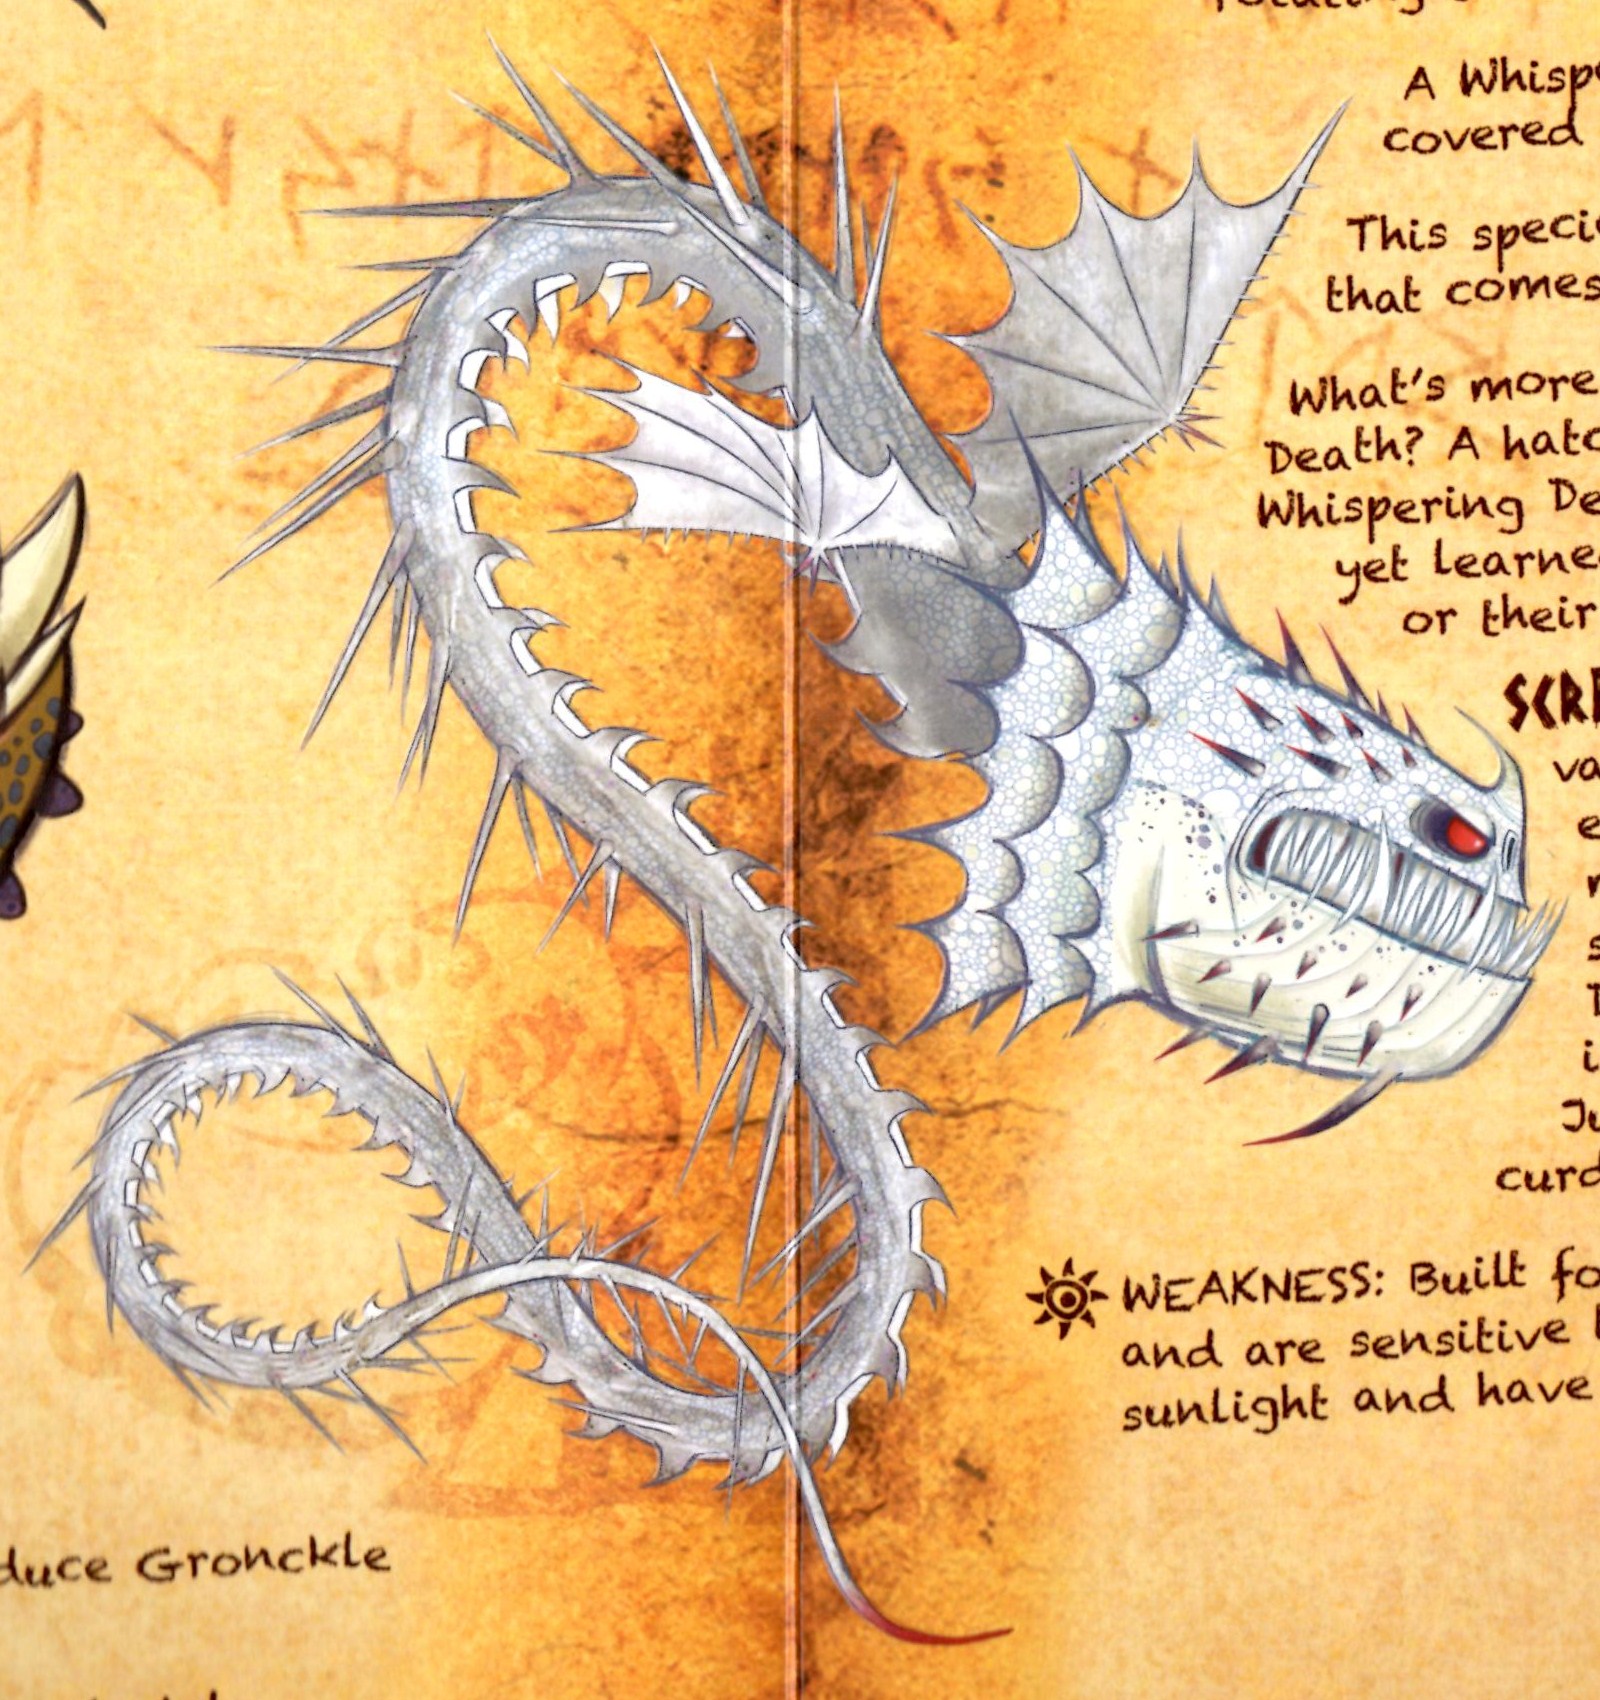 A Whisp
covered
This speci
that comes
What's more
Death? A hatc
Whispering De
yet learne
or their
SCRE
va
e
curd
WEAKNESS: Built fo
and are sensitive
sunlight and have
duce Gronckle